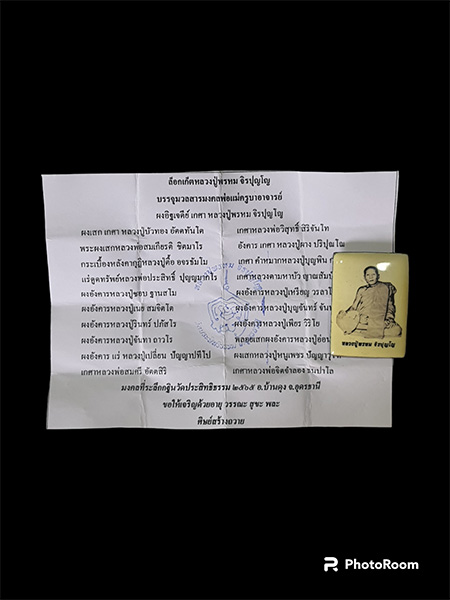 ล็อกเก็ตหลวงปู่พรหม จิรปุญโญ
บรรจุมวลสารมงคลพ่อแม่ครูบาอาจารย์
ผงอิฐเจดีย์ เกศา หลวงปู่พรหม จิรปุญโญ
ผงเสก เกศา หลวงปู่บัวทอง อัตตทันโต
เกศาหลวงพ่อวิสุทธิ์ สิริจันโท
พระผงเสกหลวงพ่อสมเกียรติ ชิตมาโร
อังคาร เกศา หลวงปู่ผาง ปริปุณโณ
กระเบื้องหลังคากุฏิหลวงปู่คือ
เกศา คำหมากหลวงปู่บุญพิน
แร่ดูดทรัพย์หลวงพ่อประสิทธิ์ ปุญญมากโร
เกศาหลวงตามหาบัว
ผงอังคารหลวงปู่ชอบ ฐานสโม
ผงอังคารหลวงปู่เหรียญ
ผงอังคารหลวงปู่เนย สมจิตโต
ผงอังคารหลวงปู่บุญจันทร์
ผงอังคารหลวงปู่รินทร์ ปภัสโร
ผงอังคารหลวงปู่เพียร วิริโย
ผงอังคารหลวงปู่จันทา ถาวโร
ผงอังคาร แร่ หลวงปู่เปลี่ยน ปัญญาปทีโป
ผงเสกหลวงปู่หนูเพชร
เกศาหลวงพ่อสมศรี อัตตสิริ
เกศาหลวงพ่อจิตจำลอง
มงคลที่ระลึกกฐินวัดประสิทธิธรรม ๒๕๖๕ อ.บ้านดุง จ.อุดรธานี
ขอให้เจริญด้วยอายุ วรรณะ สุขะ พละ
ศิษย์สร้างถวาย
หลวงปู่พรหม จิรปุญโญ
PhotoRoom